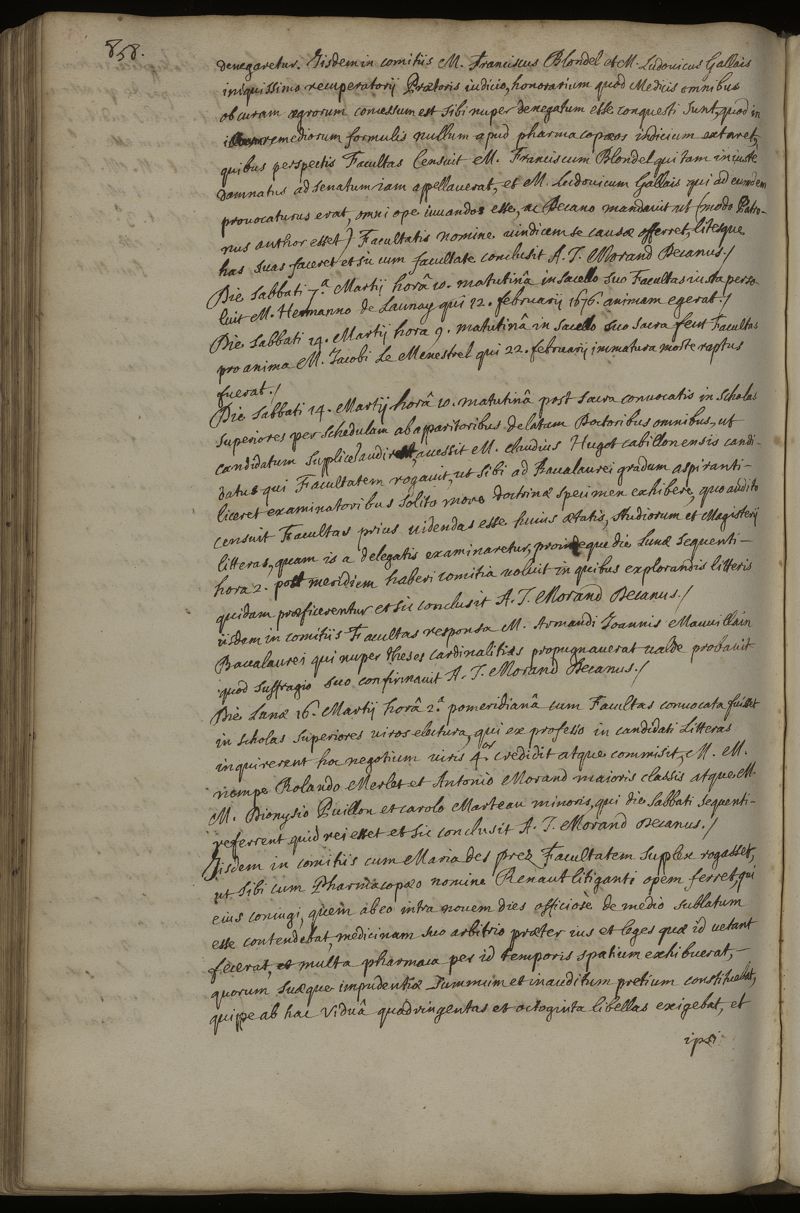 858.
denegaretur. Iisdem in comitiis M. Franciscus Blondel et M. Ludovicus Gallais
iniquissimo recuperatorij Prætoris iudicio, honorarium quod Medicis omnibus
ob curam ægrorum concessum est sibi nuper denegatum esse conquesti sunt, quod in
remediorum formulis nullum apud pharmacopæos indicium extaret,
quibus perspectis Facultas Censuit M. Franciscum Blondel qui tam iniuste
damnatus ad senatum iam appellauerat, et M. Ludovicum Gallais qui ad eumdem
prouocaturus erat, omni ope iuuandos esse, ac Decano mandauit ut (modo Patro-
nus author esset) Facultatis nomine uindicem se causæ offerret, litesque
has suas faceret et sic cum facultate conclusit A. J. Morand Decanus./
Die Sabbati 7.a Martij horâ 10. matutinâ in sacello suo Facultas iusta perso-
luit M. Hermanno de Launay qui 12. februarij 1676. animam egerat./
Die Sabbati 14. Martij hora 9. matutinâ in sacello suo sacra fecit Facultas
pro anima M. Jacobi Le Menestrel qui 22. februarij immatura morte raptus
fuerat./
Die Sabbati 14. Martij horâ 10. matutinâ post sacra conuocatis in scholas
superiores per schedulam ab apparitoribus delatam Doctoribus omnibus, ut
candidatum supplicem audirent, accessit M. claudius Hugot cabillonensis candi-
datus qui Facultatem rogauit, ut sibi ad Baccalaurei gradum aspiranti-
liceret examinatoribus solito more doctrinæ specimen exhibere, quo audito
censuit Facultas prius uidendas esse huius ætatis, studiorum et Magisterij
litteras, quam is a delegatis examinaretur, proindeque die Lunæ sequenti-
hora 2. post meridiem haberi comitia uoluit in quibus explorandis litteris
quidam præficerentur et sic conclusit A. J. Morand Decanus./
iisdem in comitiis Facultas responsa M. Armandi Joannis Mauuillain
Baccalaurei qui nuper theses cardinalitias propugnauerat ualde probauit
quod suffragio suo confirmauit A. J. Morand Decanus./
Die Lunæ 16. Martij horâ 2.a pomeridianâ cum Facultas conuocata fuisset
in scholas superiores uiros electura, qui ex professo in candidati Litteras
inquirerent hoc negotium uiris 4.or credidit atque commisit, M. M.
nempe Rolando Merlet et Antonio Morand maioris classis atque M.
M. Dionysio Puillon et carolo Marteau minoris, qui die Sabbati sequenti-
referrent quid rei esset et sic conclusit A. J. Morand Decanus./
Iisdem in comitiis cum Maria des prez Facultatem supplex rogasset,
ut sibi cum Pharmacopæo nomine Renaut litiganti opem ferret, qui
eius coniugi, quem ab eo intra nouem dies officiosè de medio sublatum
esse contendebat, medicinam suo arbitrio præter ius et leges quæ id uetant
fecerat, et multa pharmaca per id temporis spatium exhibuerat,-
quorum suæque impudentiæ summum et inauditum pretium constituebat,
quippe ab hac Viduâ quadringentas et octoginta libellas exigebat, et
ipsi